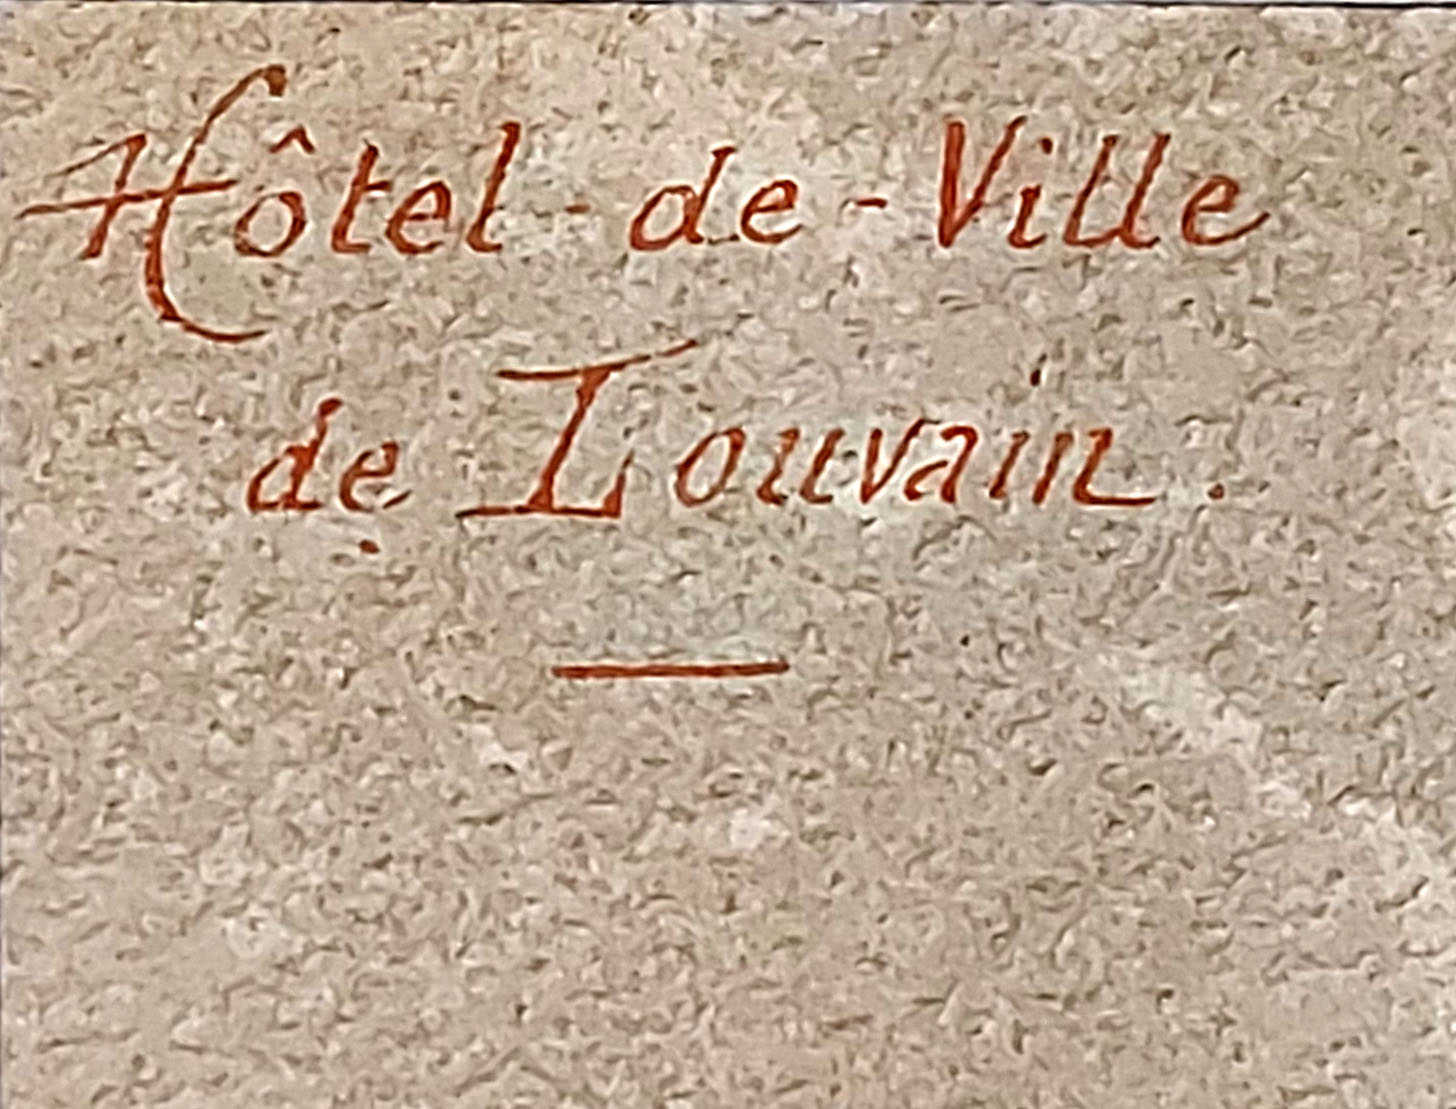 Hôtel-de-Ville
de Louvain.